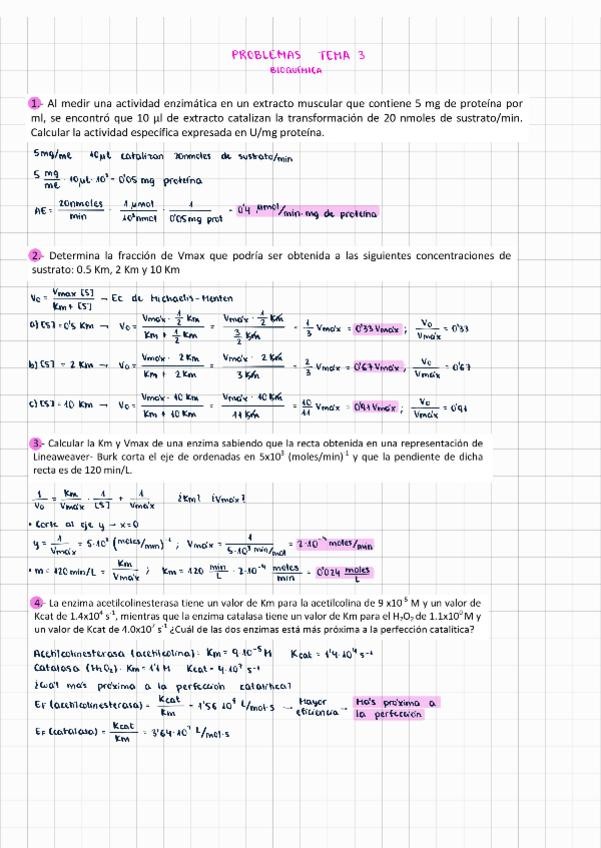 PROBLEMAS TEMA 3
BIOQUÍMICA
1.- Al medir una actividad enzimática en un extracto muscular que contiene 5 mg de proteína por
ml, se encontró que 10 µl de extracto catalizan la transformación de 20 nmoles de sustrato/min.
Calcular la actividad específica expresada en U/mg proteína.
5mg/ml 10µL catalizan 20nmoles de sustrato/min
5 mg/ml · 10µL · 10³ = 0'05 mg proteína
AE = 20nmoles/min · 1 µmol/10³nmol · 1/0'05mg prot = 0'4 µmol/min·mg de proteína
2.- Determina la fracción de Vmax que podría ser obtenida a las siguientes concentraciones de
sustrato: 0.5 Km, 2 Km y 10 Km
V₀ = Vmax [S]/Km + [S] → Ec de Michaelis-Menten
a) [S] = 0'5 Km → V₀ = Vmax · 1/2 Km / Km + 1/2 Km = Vmax · 1/2 Km / 3/2 Km = 1/3 Vmáx = 0'33 Vmáx ; V₀/Vmáx = 0'33
b) [S] = 2 Km → V₀ = Vmáx · 2Km / Km + 2Km = Vmáx · 2 Km / 3 Km = 2/3 Vmáx = 0'67 Vmáx , V₀/Vmáx = 0'67
c) [S] = 10 Km → V₀ = Vmáx · 10 Km / Km + 10 Km = Vmáx · 10 Km / 11 Km = 10/11 Vmáx = 0'91 Vmáx ; V₀/Vmáx = 0'91
3.- Calcular la Km y Vmax de una enzima sabiendo que la recta obtenida en una representación de
Lineaweaver- Burk corta el eje de ordenadas en 5x10³ (moles/min)⁻¹ y que la pendiente de dicha
recta es de 120 min/L.
1/V₀ = Km/Vmáx · 1/[S] + 1/Vmáx ¿Km? ¿Vmáx?
• Corte al eje y → x=0
y = 1/Vmáx = 5·10³ (moles/min)⁻¹ ; Vmáx = 1/5·10³ min/mol = 2·10⁻⁴ moles/min
• m = 120 min/L = Km/Vmáx ; Km = 120 min/L · 2·10⁻⁴ moles/min = 0'024 moles/L
4.- La enzima acetilcolinesterasa tiene un valor de Km para la acetilcolina de 9 x10⁻⁵ M y un valor de
Kcat de 1.4x10⁴ s⁻¹, mientras que la enzima catalasa tiene un valor de Km para el H₂O₂ de 1.1x10⁰ M y
un valor de Kcat de 4.0x10⁷ s⁻¹ ¿Cuál de las dos enzimas está más próxima a la perfección catalítica?
Acetilcolinesterasa (acetilcolina): Km = 9·10⁻⁵ M Kcat = 1'4·10⁴ s⁻¹
Catalasa (H₂O₂): Km = 1'1 M Kcat = 4·10⁷ s⁻¹
¿Cuál más próxima a la perfección catalítica?
EF (acetilcolinesterasa) = Kcat/Km = 1'56·10⁸ L/mol·s → Mayor eficiencia → Más próxima a la perfección
EF (catalasa) = Kcat/Km = 3'64·10⁷ L/mol·s